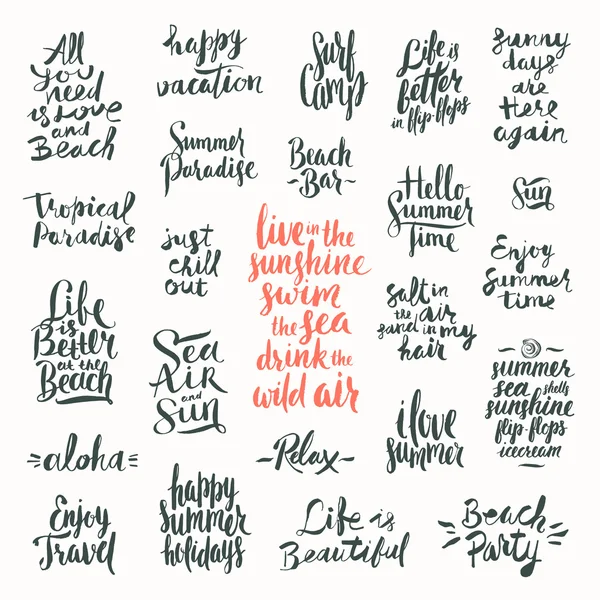 All
you
need
is Love
and
Beach
happy
vacation
Surf
Camp
Life is
better
in flip-flops
sunny
days
are
Here
again
Summer
Paradise
Beach
-Bar-
Hello
Summer
Time
Sun
Tropical
Paradise
just
chill
out
live in the
sunshine
swim
the sea
drink the
wild air
Enjoy
Summer
time
Life
is
Better
at the
Beach
Sea
Air
and
Sun
salt in
the air
sand in my
hair
summer
sea shells
sunshine
flip-flops
icecream
i love
summer
aloha
-Relax-
Enjoy
Travel
happy
summer
holidays
Life is
Beautiful
Beach
Party